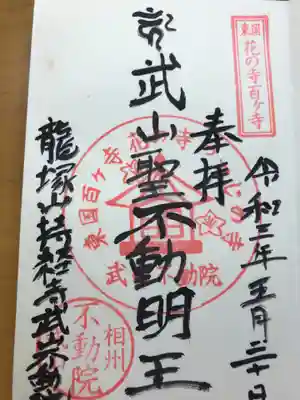 東国
花の寺百ケ寺
奉拝
令和三年五月三十日
武山聖不動明王
龍塚山持経寺武山不動院
花の寺
東国百ケ寺
武 不動院
相州
不動院